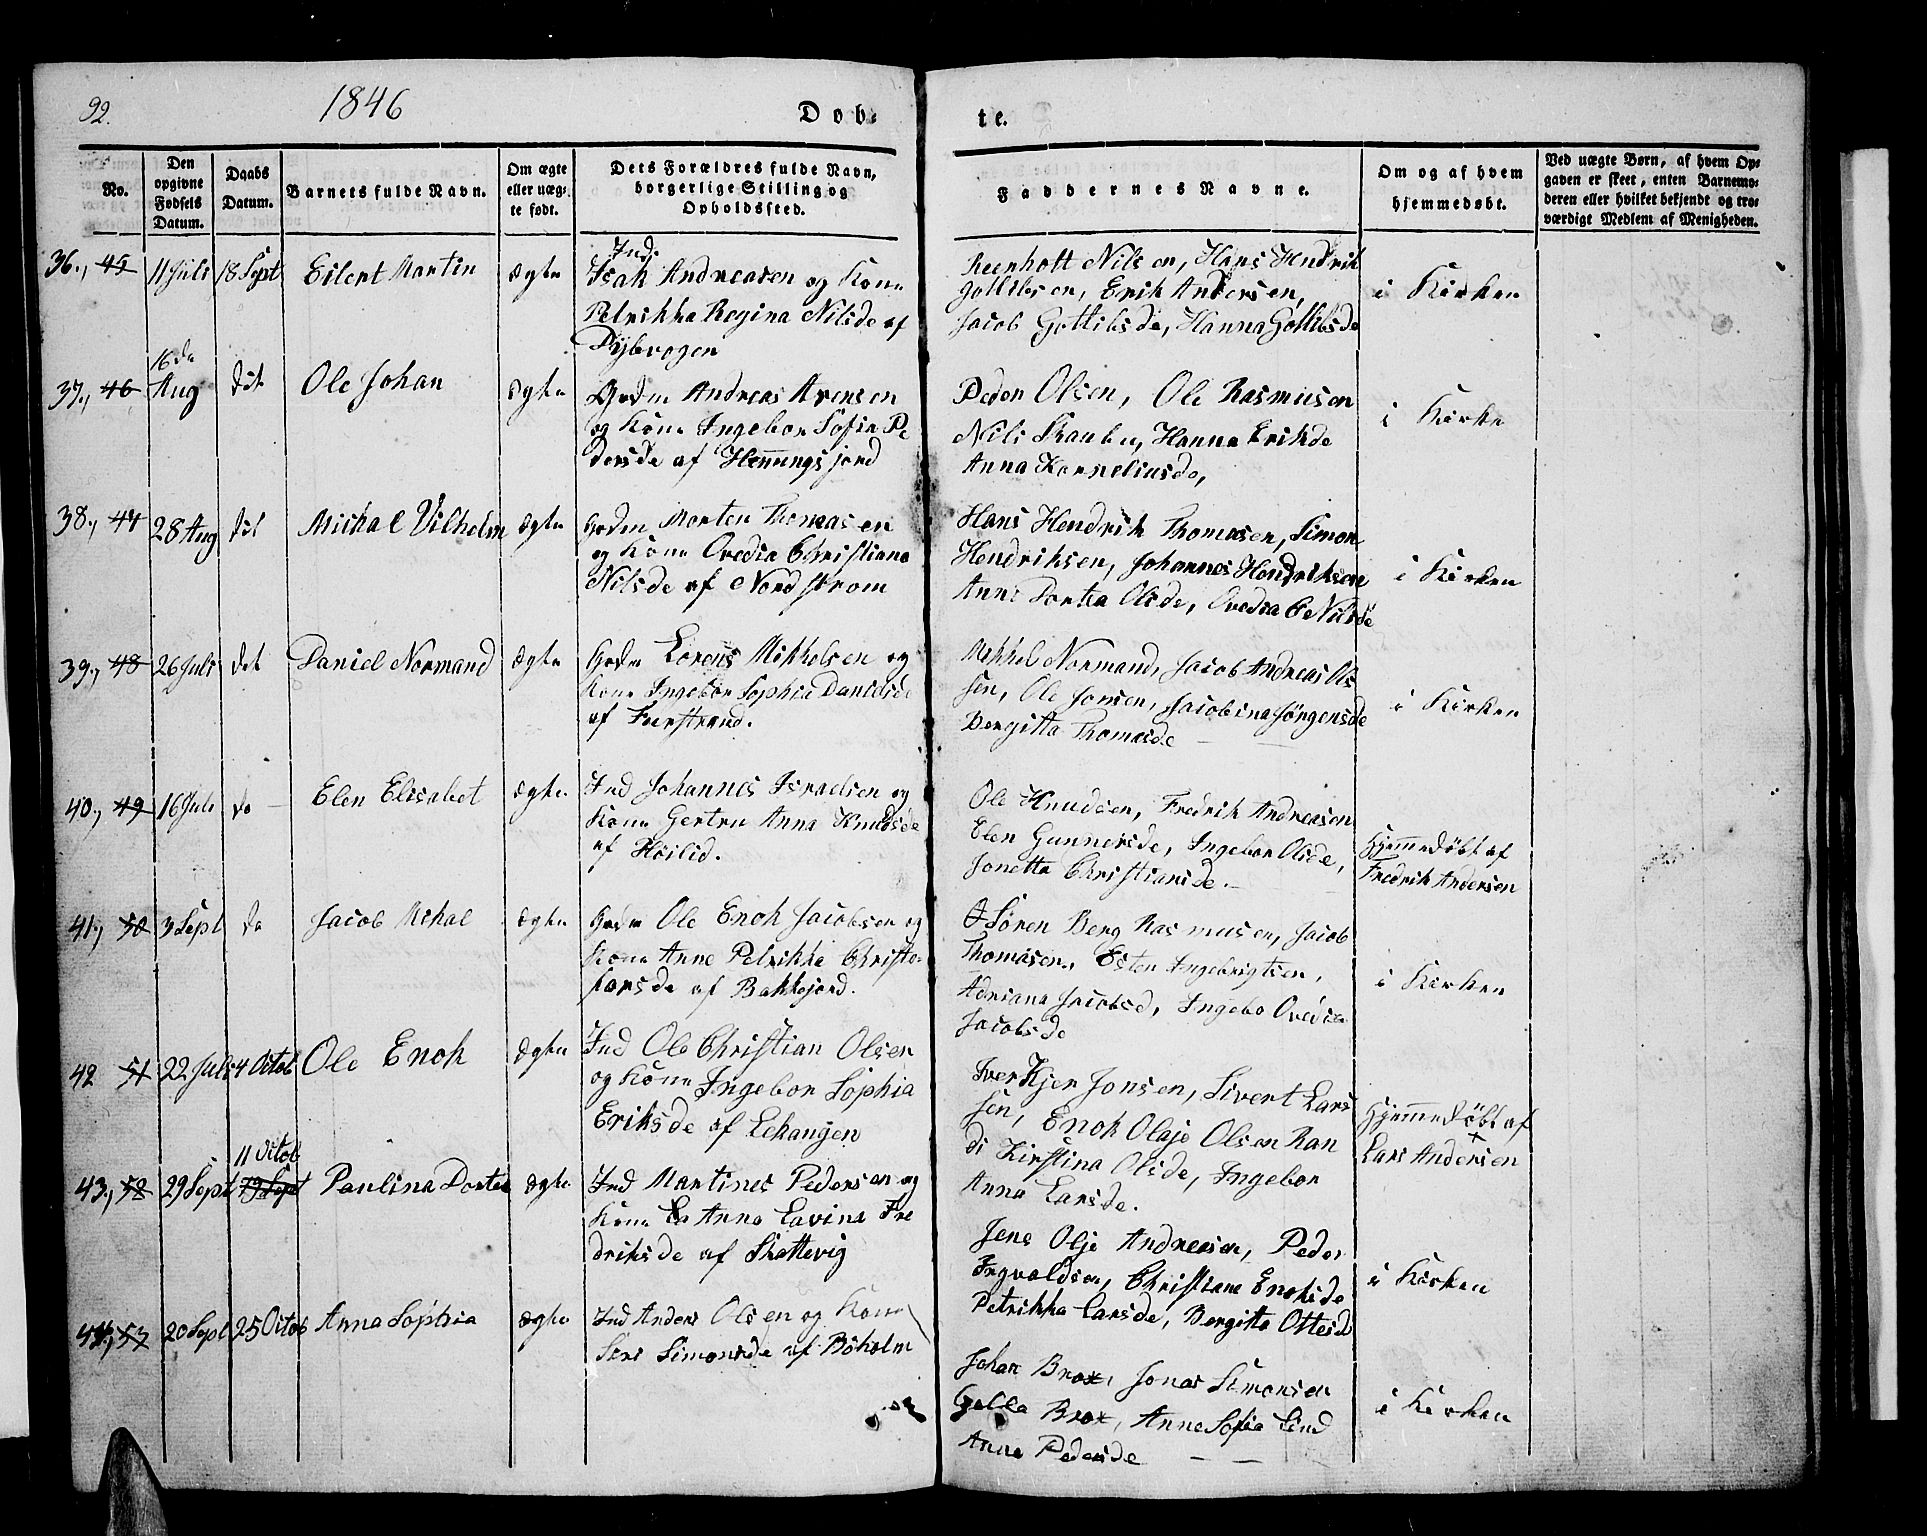 92.
1846
Døb-
te.
No.
Den opgivne Fødsels Datum.
Daabs Datum.
Barnets fulde Navn.
Om ægte eller uægte født.
Dets Forældres fulde Navn, borgerlige Stilling og Opholdssted.
Faddernes Navne.
Om og af hvem hjemmedøbt.
Ved uægte Børn, af hvem Opgaven er skeet, enten Barnemoderen eller hvilket bekjendt og troværdigt Medlem af Menigheden.
36., 45 11 Juli 18 Sept Eilert Martin Ægte
Ind
Isak Andreasen og Kone
Petrikka Regina Nilsde af
Dybvogen
Reenholt Nilsen, Hans Hendrik
Gottlibsen, Erik Andersen,
Jacob Gottlibsde, Hanna Gottlibsde
i Kirken
37., 46 16de Aug det Ole Johan Ægte
Grdm Andreas Arensen
og Kone Ingebor Sofia Pe
dersde af Hemingsjord
Peder Olsen, Ole Rasmusen
Nils, Hanna Eriksde
Anna Korneliusde,
i Kirke
38., 47 28 Aug det Michael Vilhelm Ægte
Grdm Morten Thomasen
og Kone Ovedia Christiana
Nilsde af Nordstrøm
Hans Hendrik Thomasen, Simon
Hendriksen, Johannes Hendriksen
Anne Dortea Olsde, Ovedia C Nilsde
i Kirken
39., 48 26 Juli det Daniel Normand Ægte
Grdm Lorens Mikkelsen og
Kone Ingebor Sophia Danielsde
af Finstrand.
Mikkel Normand, Jacob Andreas Ols
sen, Ole Jonsen, Jacobina Jørgensde
Bergitta Thomasde
i Kirken
40., 49 16 Juli do Elen Elisabet Ægte
Ind Johannes Israelsen og
Kone Gertru Anna Knudsde
af Høilid.
Ole Knudsen, Fredrik Andreasen
Elen Gunnersde, Ingebor Olsde,
Jonetta Christiansde.
Hjemmedøbt af
Fredrik Andersen
41., 50 3 Sept do Jacob Mikal Ægte
Grdm Ole Enok Jacobsen og
Kone Anne Petrikke Christo-
farsde af Bakkejord.
Søren Berg Rasmusen, Jacob
Thomasen, Esten Ingebrigtsen,
Adriana Jacobsd, Ingebo Ovedia
Jacobsde
i Kirken
42 51 22 Juli 4 Octob Ole Enok Ægte
Ind Ole Christian Olsen
og Kone Ingebor Sophia
Eriksde af Lekangen
Iver Kjer Jonsen, Sivert Lars
sen, Enok Olaje Olsen Ran
di Kirstina Olsde, Ingebor
Anna Larsde.
Hjemmedøbt af
Lars Andersen
43., 52 29 Sept 11 Octob Paulina Dortea Ægte
Ind Martines Pedersen og
Kone Anna Lavina Fre
driksde af Skattevig
Jens Olje Andreasen, Peder
Ingvaldsen, Christiane Enoksde
Petrikka Larsde, Bergitte Ottesd
i Kirken
44, 53 20 Sept 25 Octob Anna Sophia Ægte
Ind Anders Olsen og Kone
Siri Simonsde af Bøholm
Johan Brox, Jonas Simonsen
Brox, Anne Sofia Lind
Anne Pedersde
i Kirken